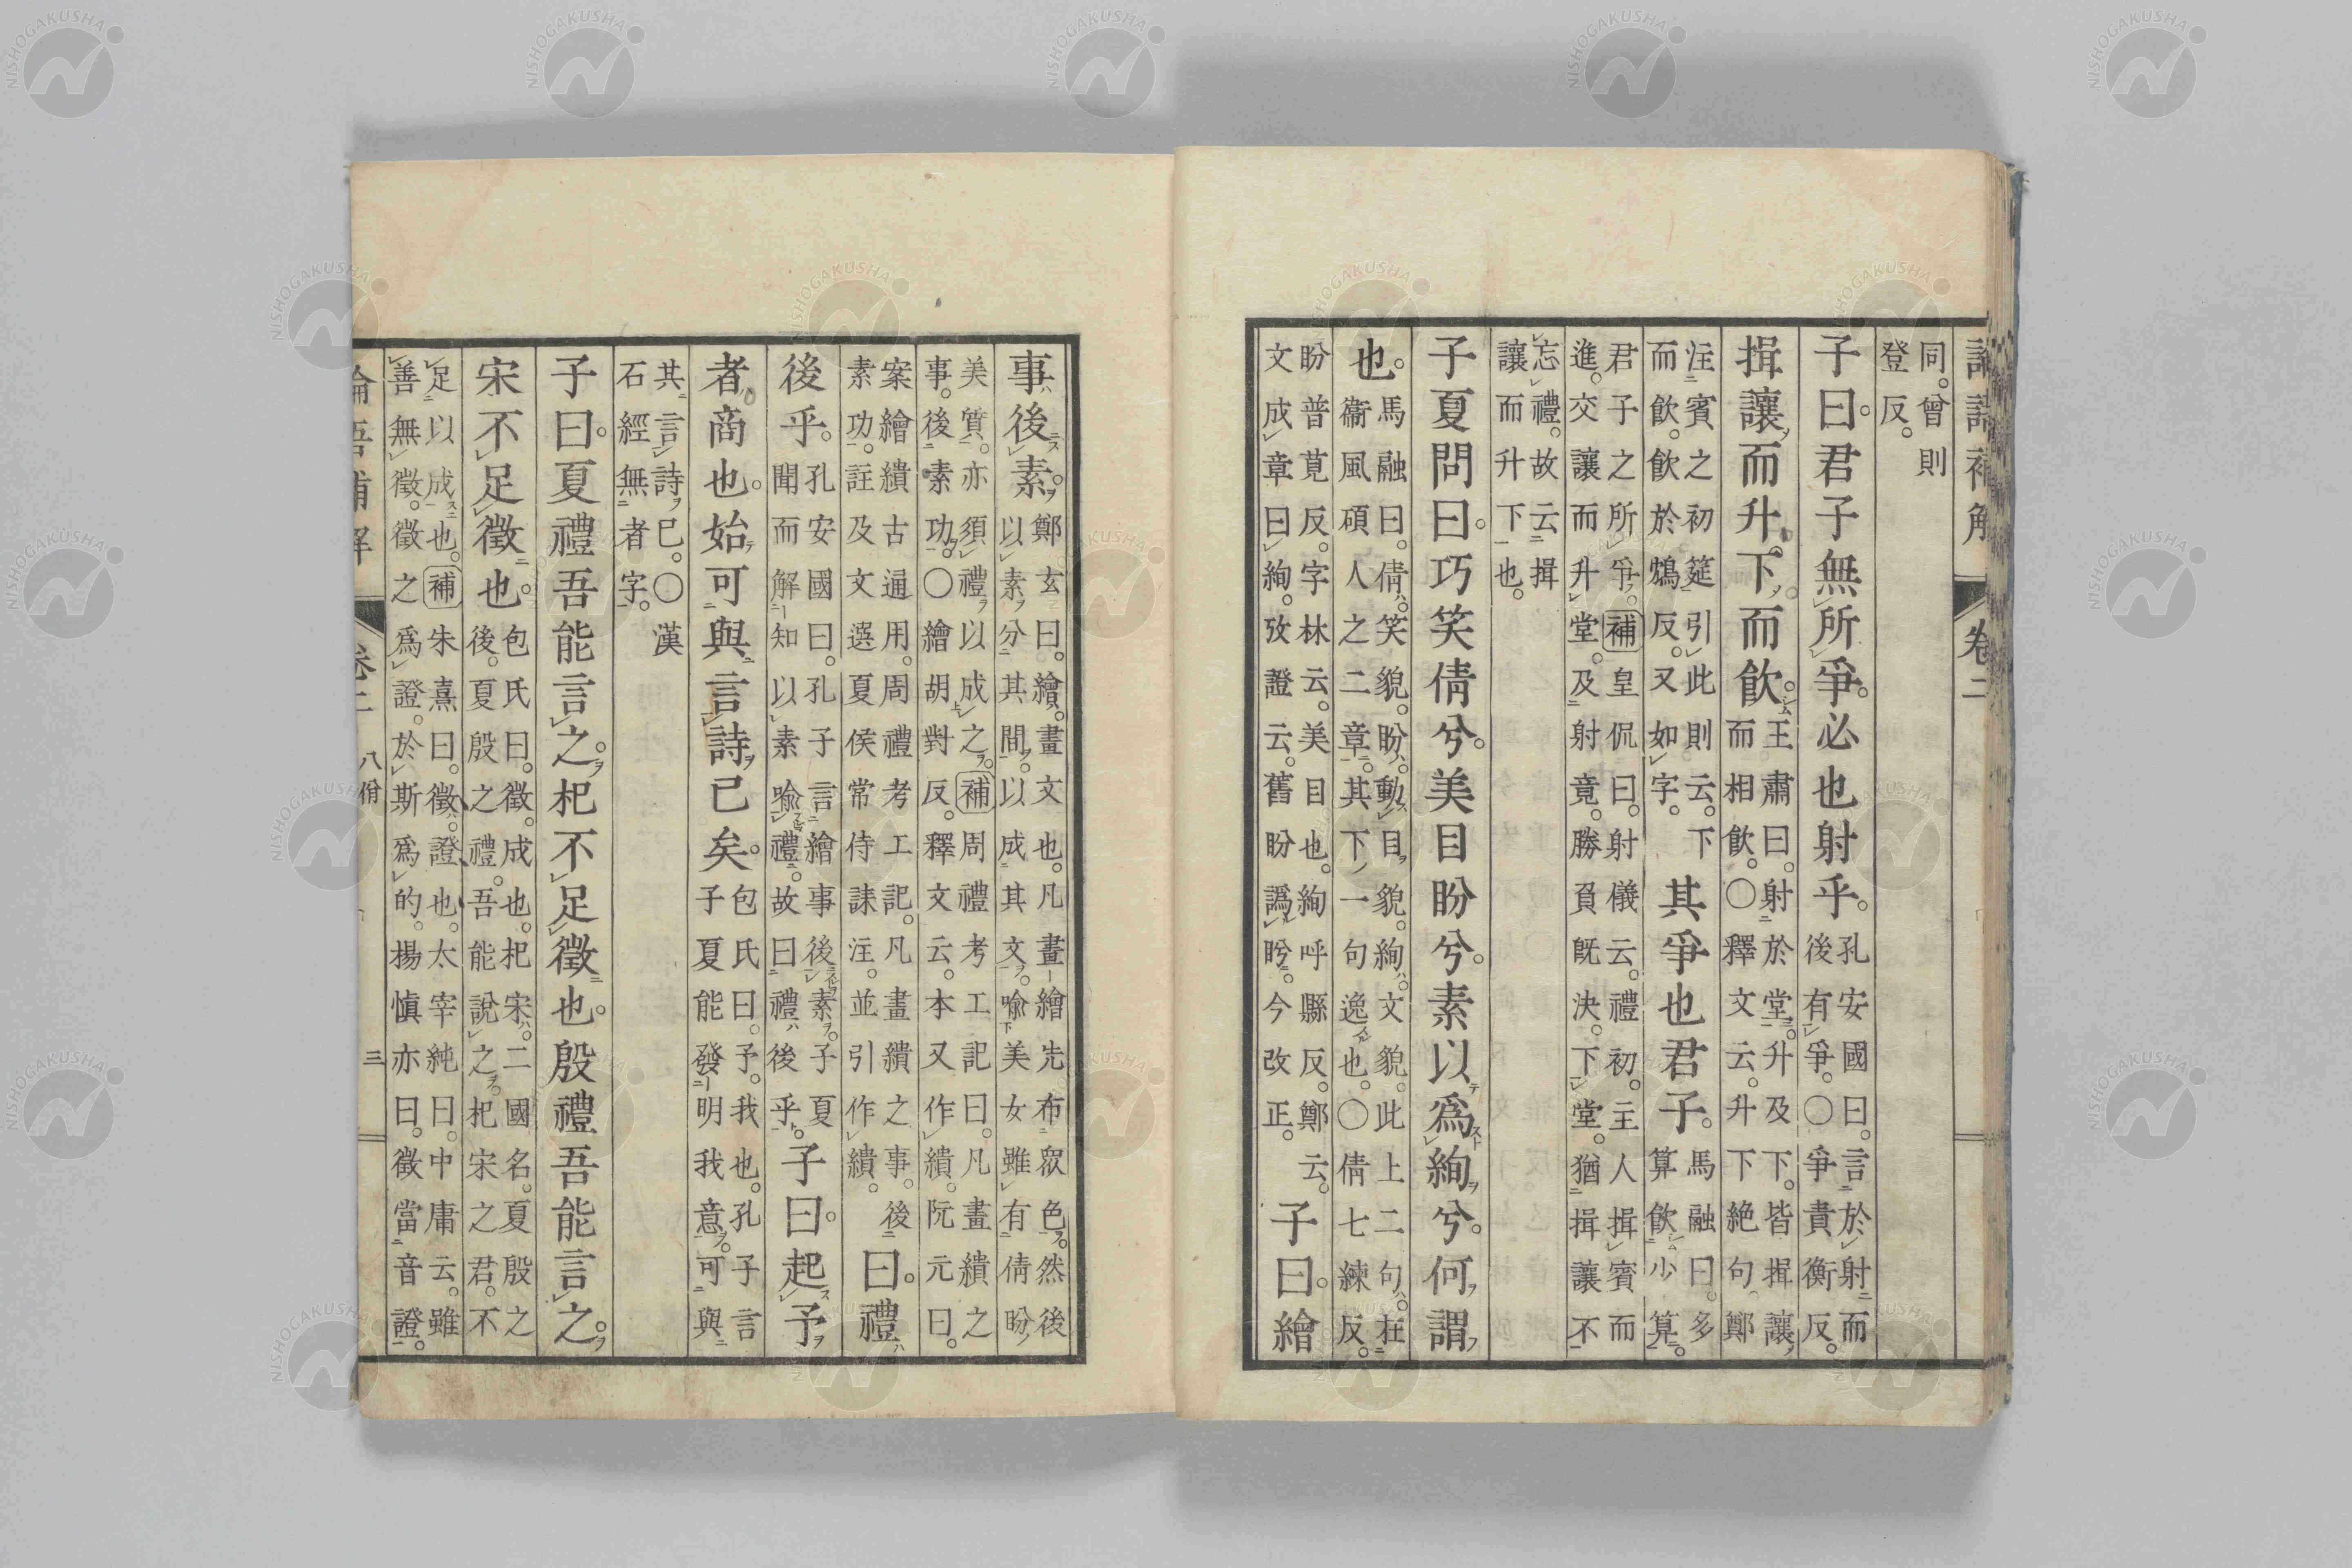 論語補解　卷二
同。曾則
登反。
子曰。君子無所爭。必也射乎。孔安國曰。言於射而
後有爭。〇爭責衡反。
揖讓而升。下而飲。王肅曰。射於堂。升及下。皆揖讓
而相飲。〇釋文云。升下絶句。鄭
注賓之初筵引此則云。下
而飲。飲於鴆反。又如字。
其爭也君子。馬融曰。多
算飲少算。
君子之所爭。補皇侃曰。射儀云。禮初。主人揖賓而
進。交讓而升堂。及射竟。勝負既決。下堂。猶揖讓不
忘禮。故云揖
讓而升下也。
子夏問曰。巧笑倩兮。美目盼兮。素以爲絢兮。何謂
也。馬融曰。倩。笑貌。盼。動目貌。絢。文貌。此上二句。在
衞風碩人之二章。其下一句逸也。〇倩七練反。
盼普莧反。字林云。美目也。絢呼縣反。鄭云。
文成章曰絢。攷證云。舊盼譌盻。今改正。
子曰。繪
事後素。鄭玄曰。繪。畫文也。凡畫繪先布衆色。然後
以素分其間。以成其文。喩美女雖有倩盼
美質。亦須禮以成之。補周禮考工記曰。凡畫繢之
事。後素功。〇繪胡對反。釋文云。本又作繢。阮元曰。
案繪繢古通用。周禮考工記。凡畫繢之事。後
素功。註及文選夏侯常侍誄注。並引作繢。
曰。禮
後乎。孔安國曰。孔子言繪事後素。子夏
聞而解知以素喩禮。故曰禮後乎。
子曰。起予
者。商也。始可與言詩已矣。包氏曰。予。我也。孔子言
子夏能發明我意。可與
其言詩已。〇漢
石經無者字。
子曰。夏禮吾能言之。杞不足徵也。殷禮吾能言之。
宋不足徵也。包氏曰。徵。成也。杞宋。二國名。夏殷之
後。夏殷之禮。吾能說之。杞宋之君。不
足以成也。補朱熹曰。徵。證也。太宰純曰。中庸云。雖
善無徵。徵之爲證。於斯爲的。楊愼亦曰。徵當音證。
論語補解　卷二　八佾　三